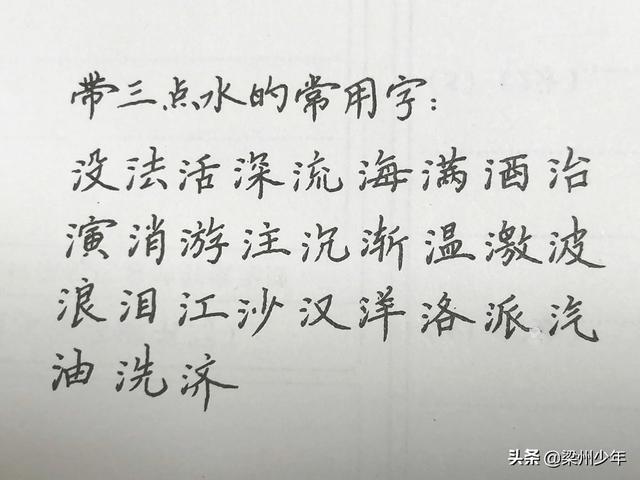 带三点水的常用字：
没法活深流海满酒治
演消游注沉渐温激波
浪泪江沙汉洋洛派汽
油洗济
头条 @梁州少年